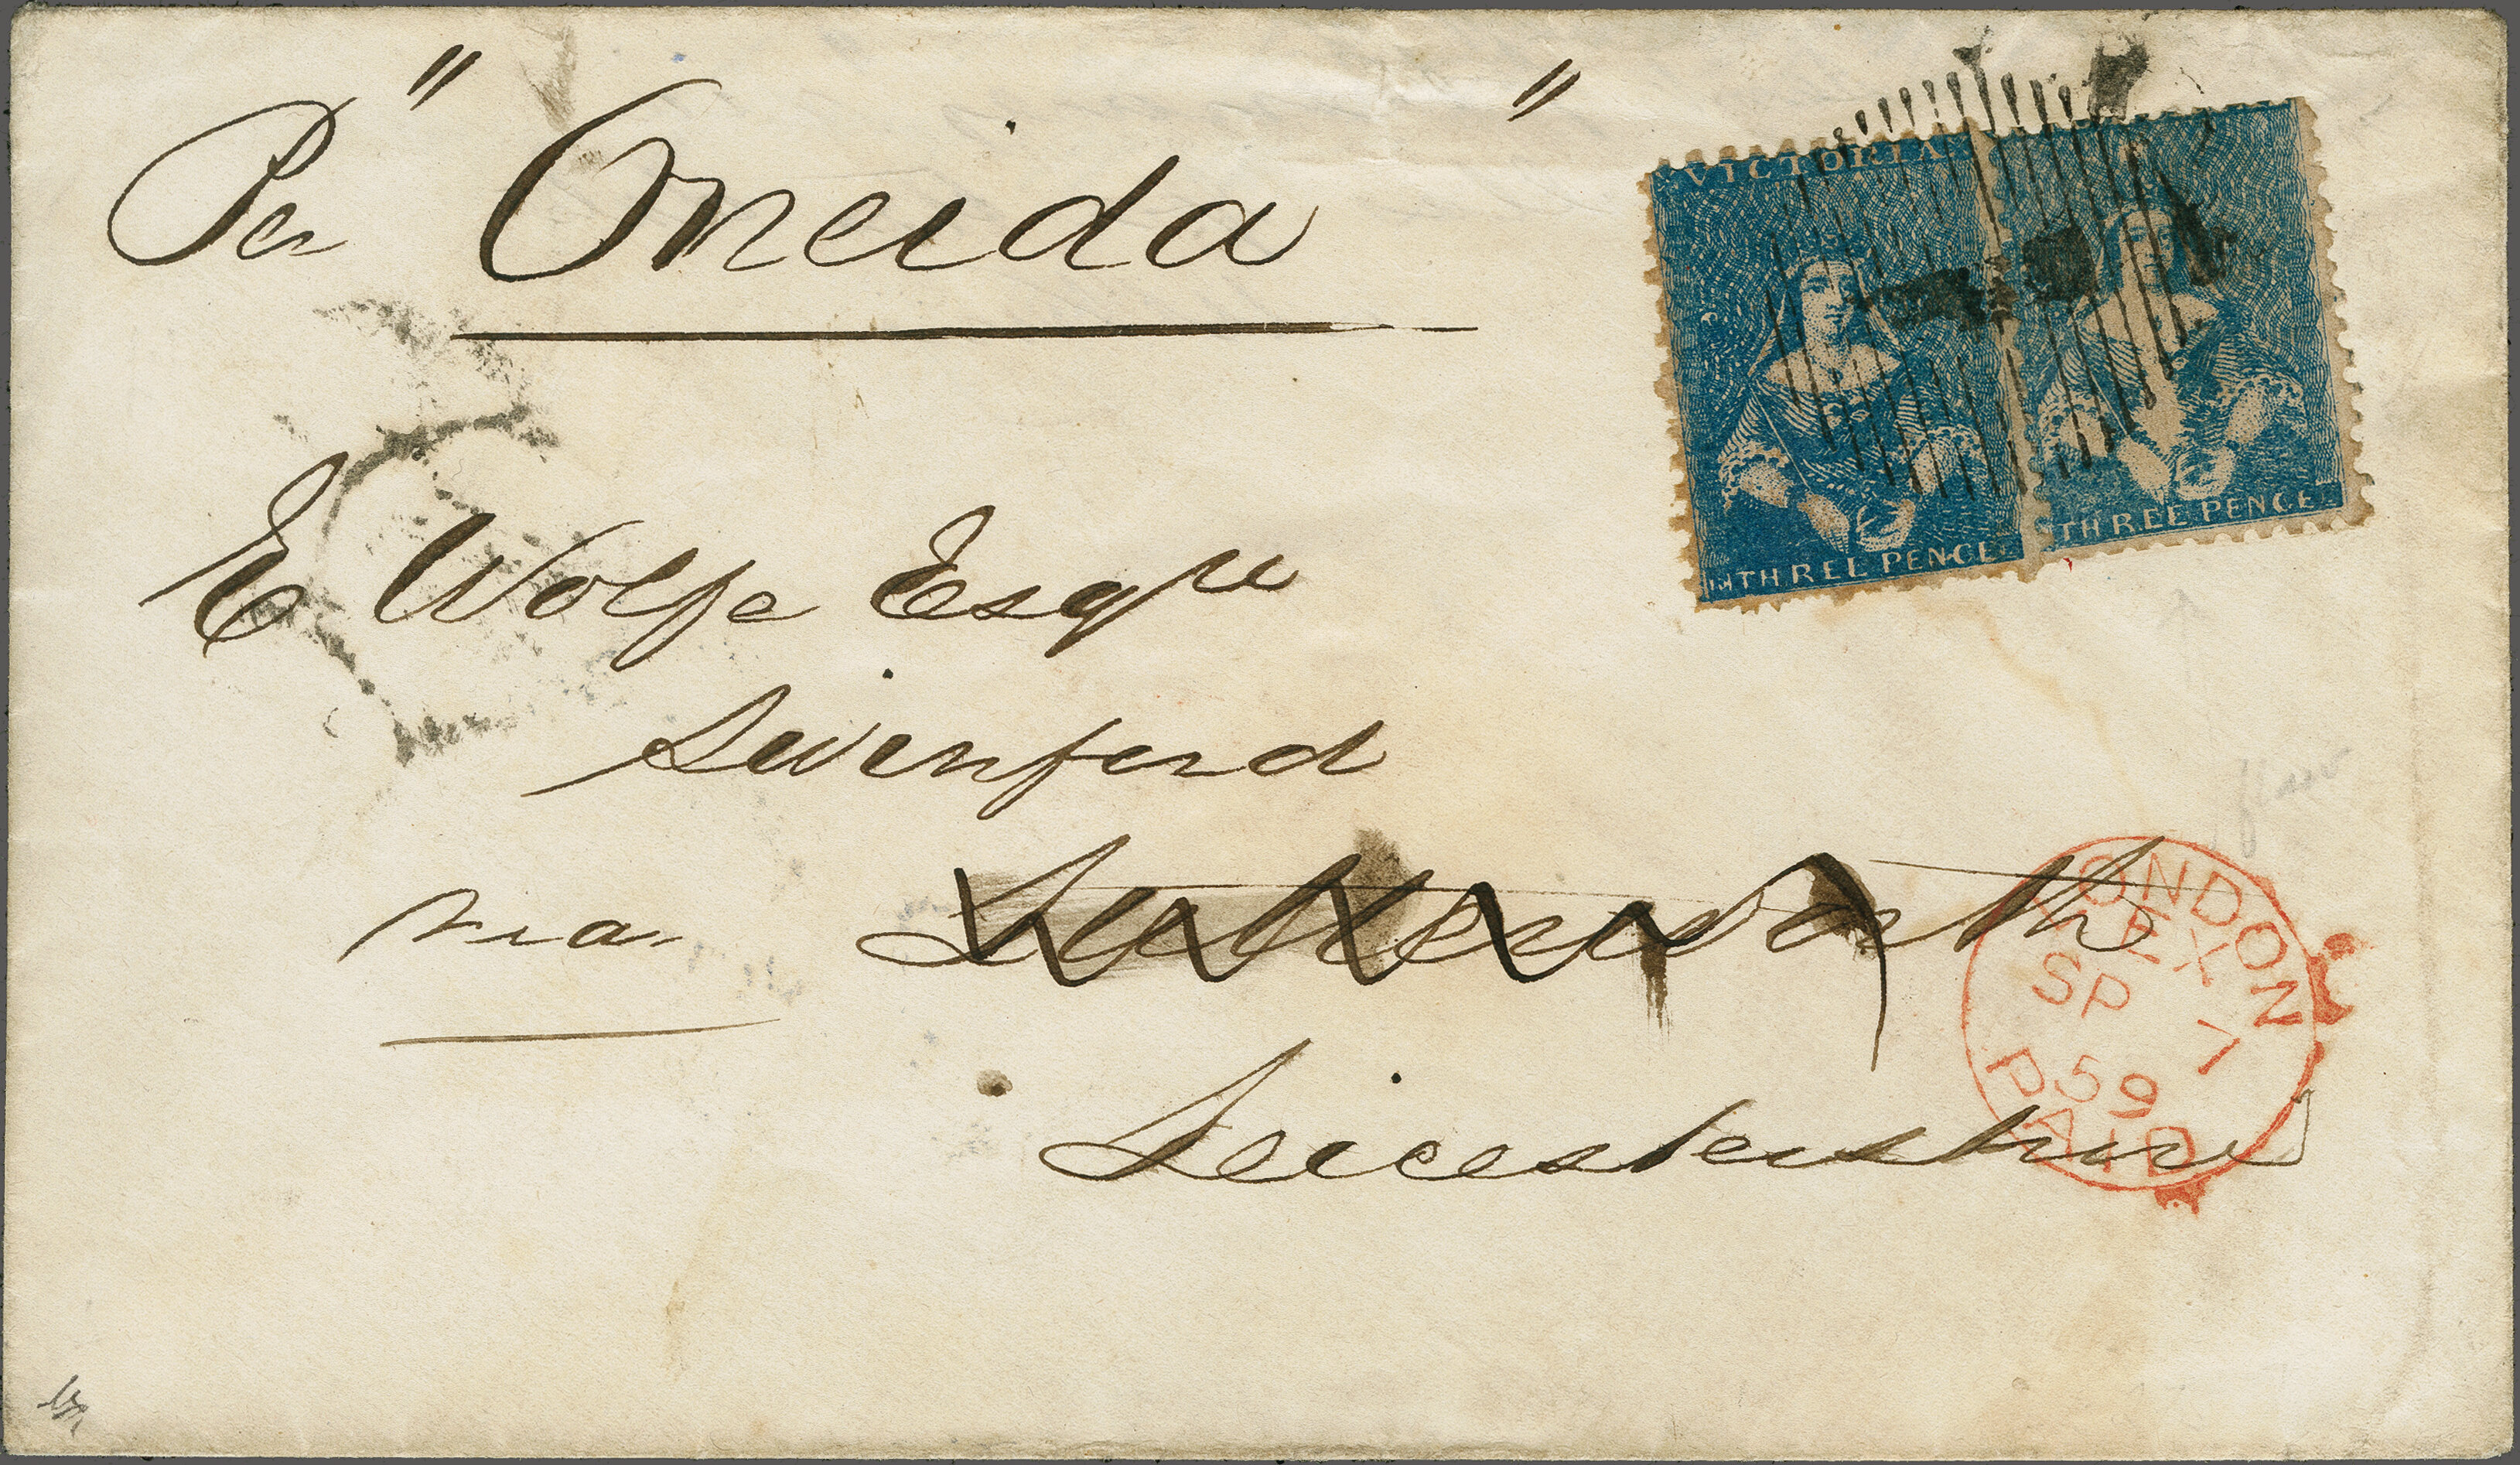 Per "Oneida"
VICTORIA
THREE PENCE
THREE PENCE
E Wolfe Esqre
Swinford
via Lutterworth
Leicestershire
LONDON
EX
SP 7
59
PAID